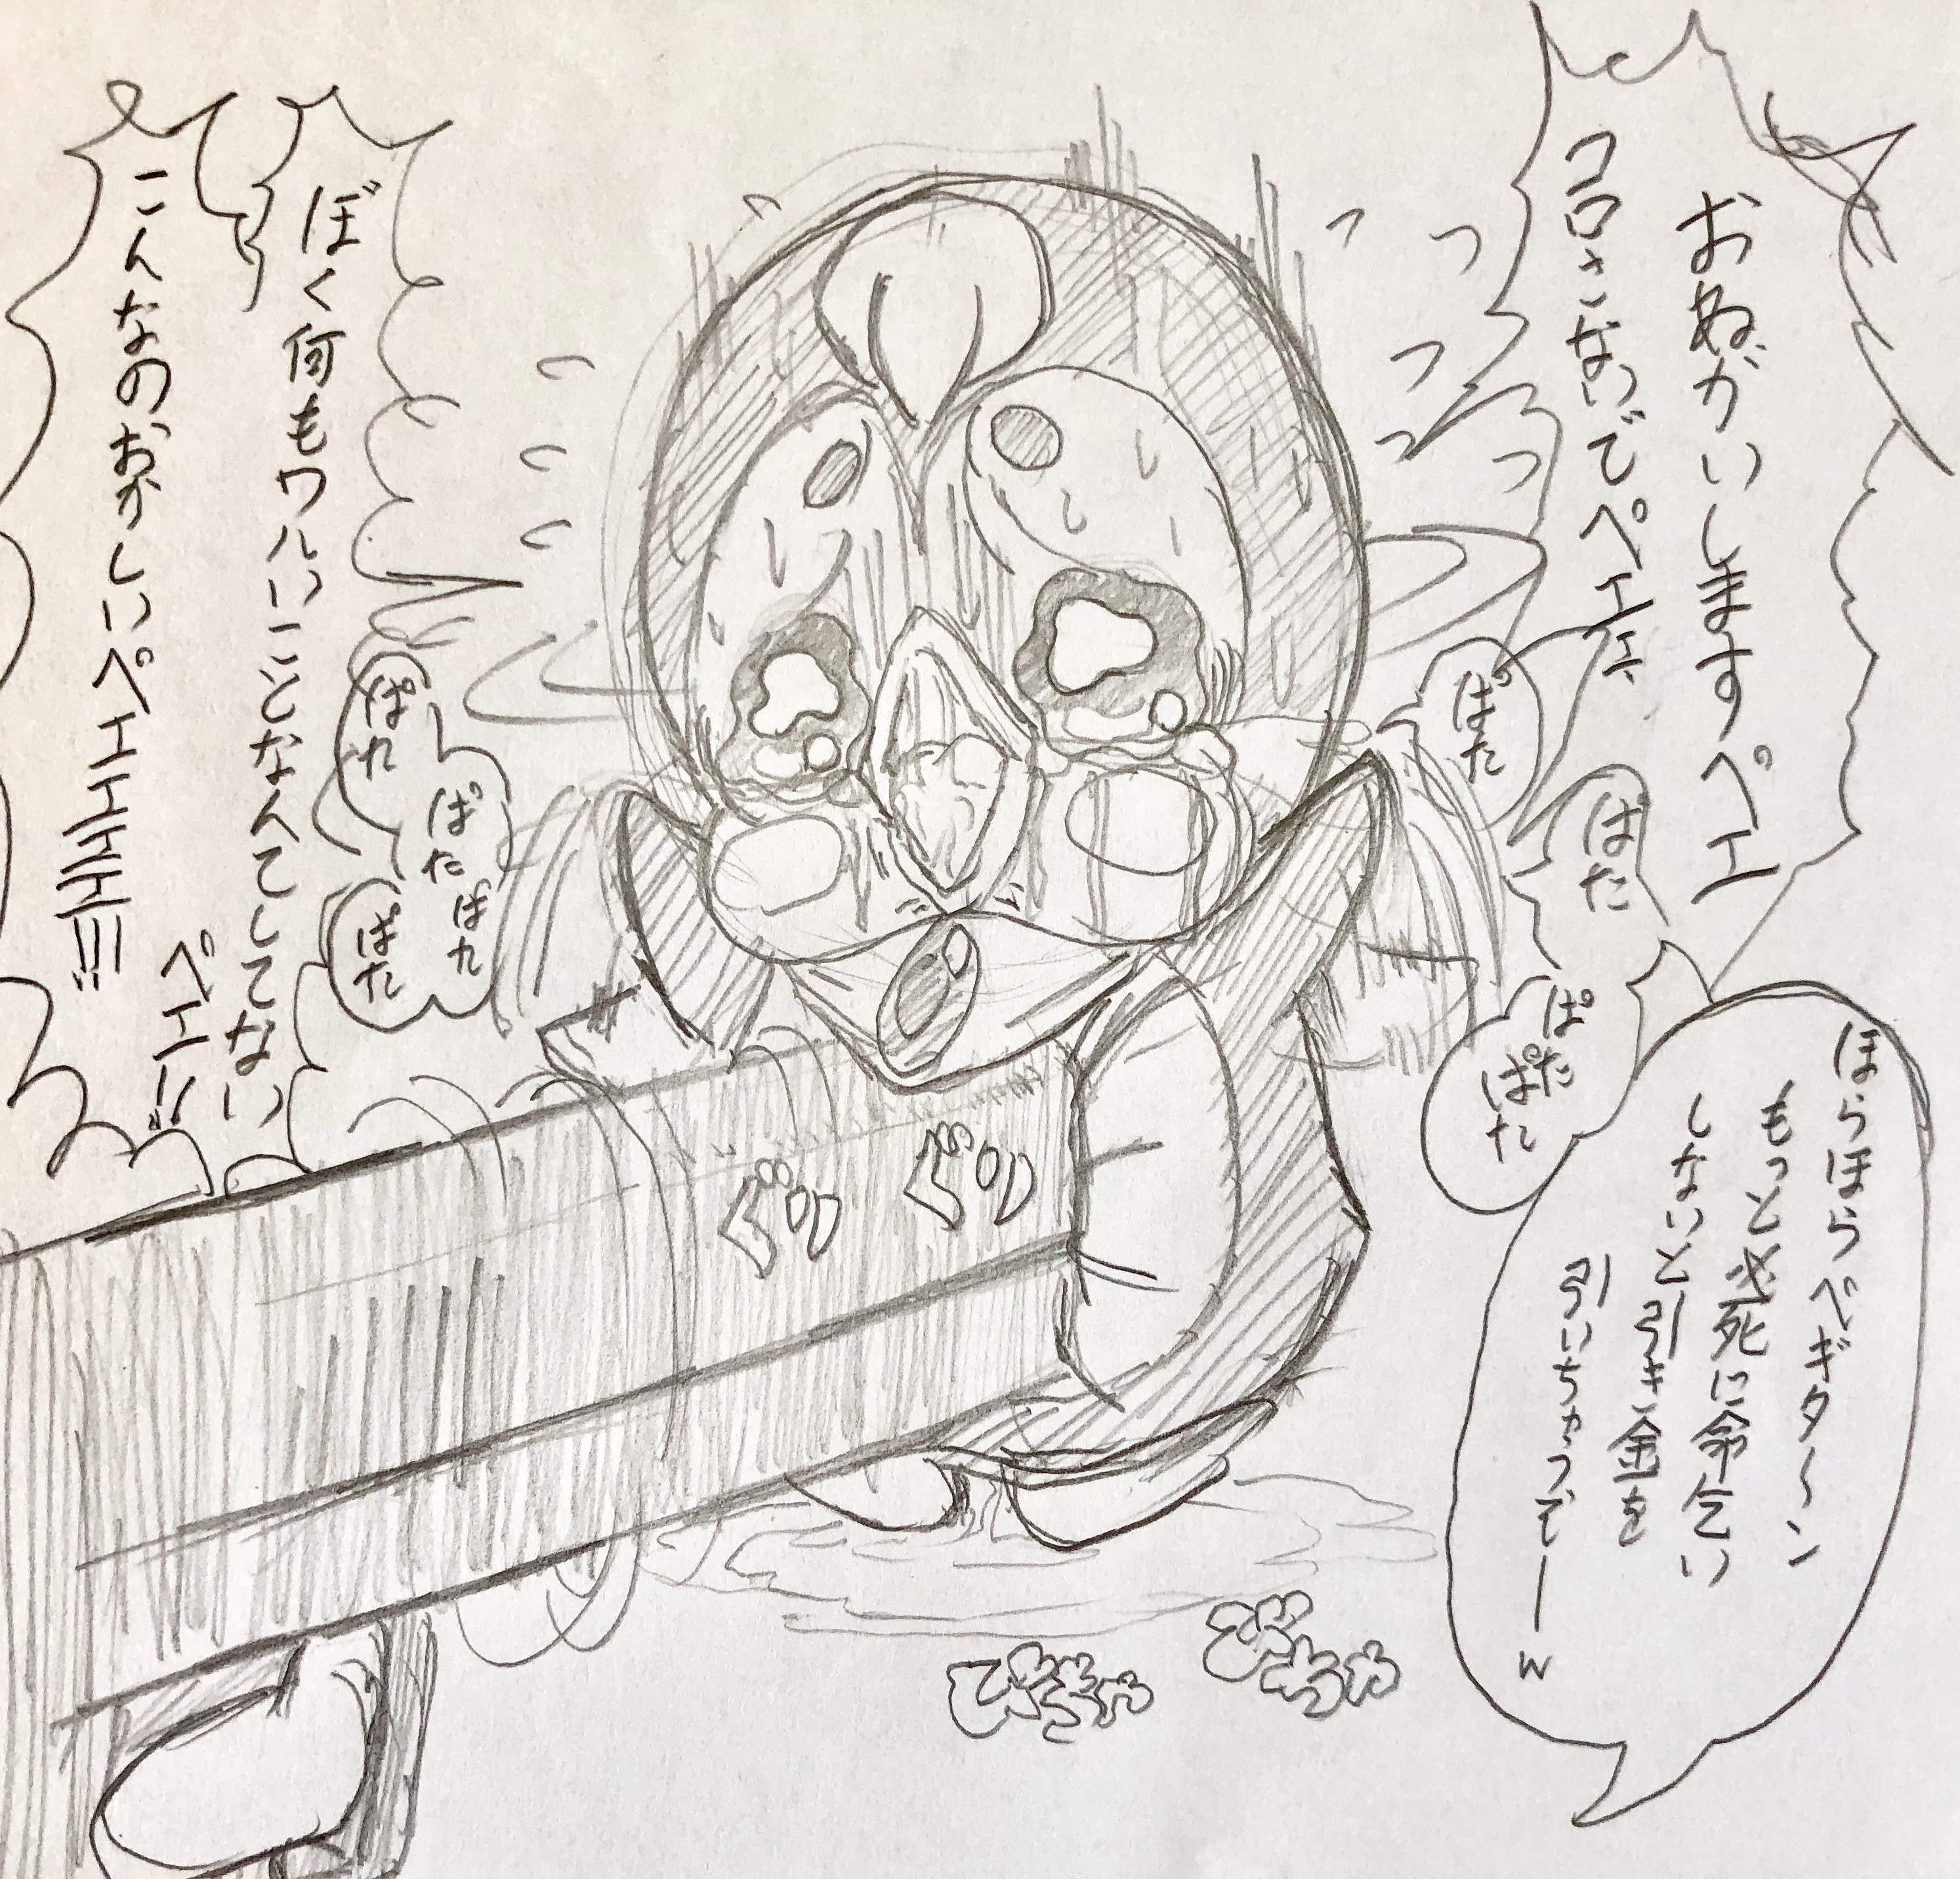 おねがいしますペエ
コロさないでペエェ
ぱた
ぱた
ぱた
ぱた
ほらほらペギタ〜ン
もっと必死に命乞い
しないと引き金を
引いちゃうでーw
ぼく何もワルいことなんてしてない
ペエ!!
こんなのおかしいペエエエエエ!!!
ぱた
ぱた
ぱた
ぱた
グリ
グリ
びちゃ
びちゃ